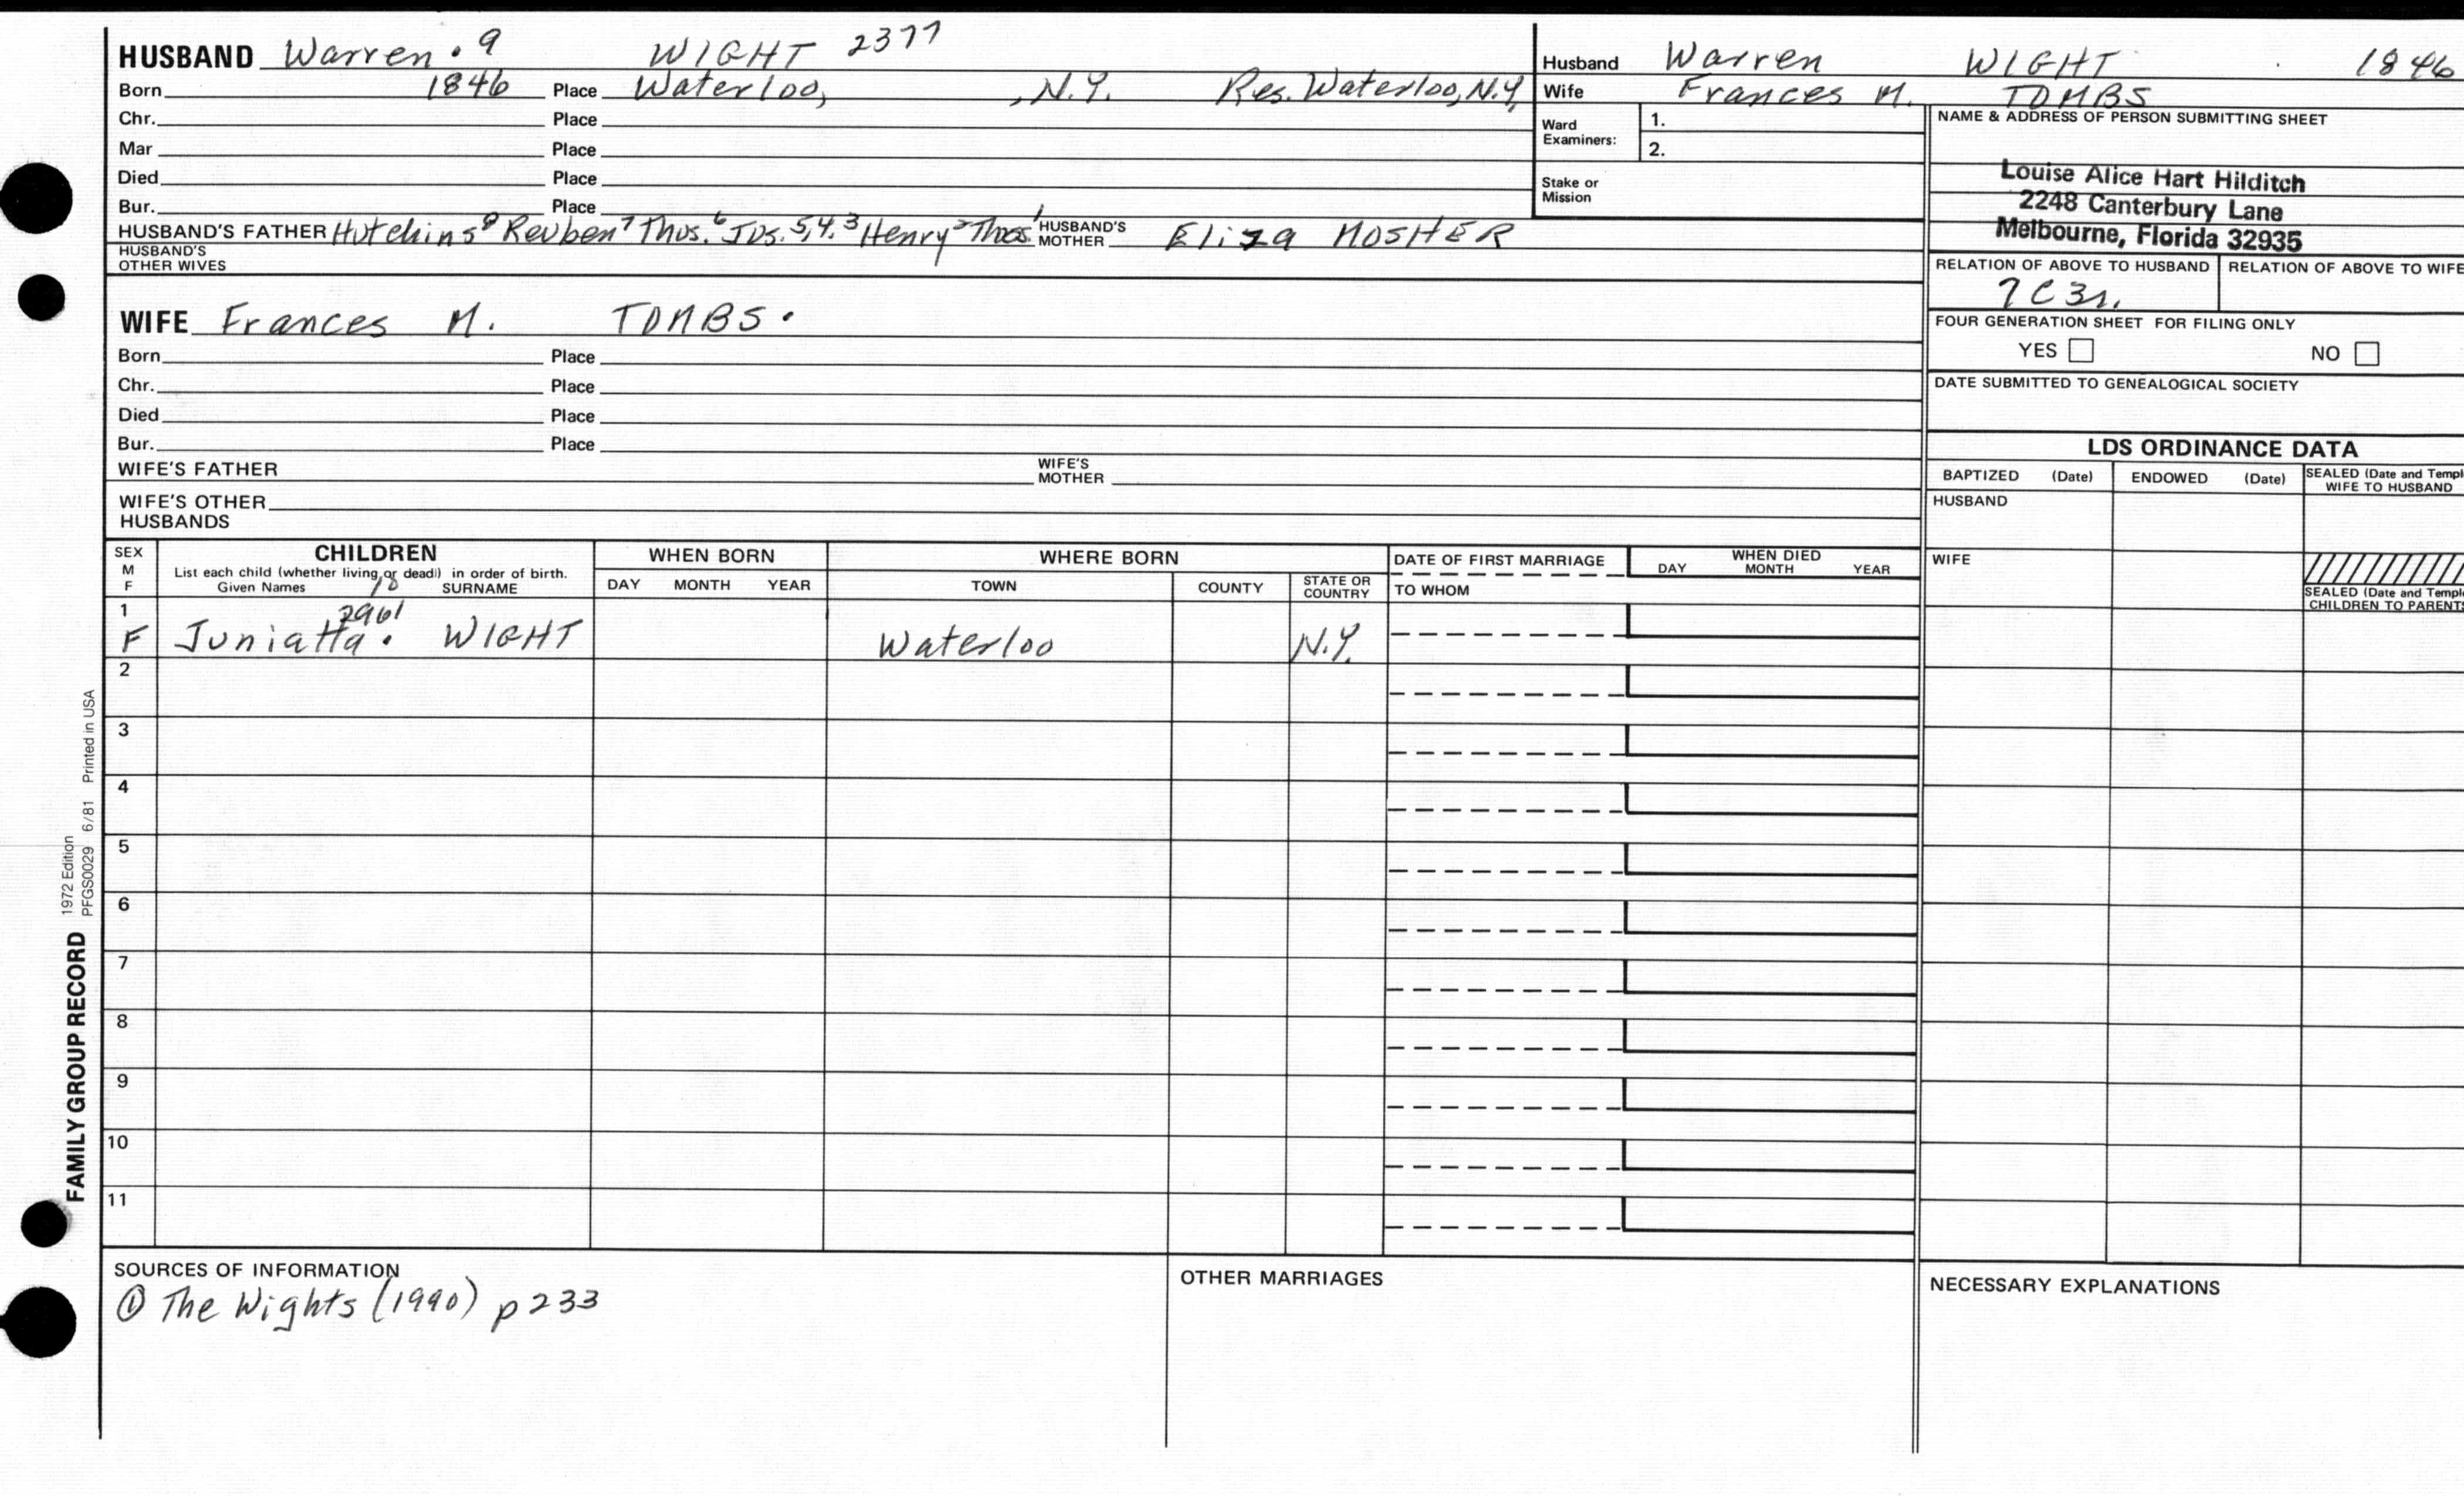 HUSBAND Warren · 9 WIGHT 2377
Born 1846 Place Waterloo, , N.Y. Res. Waterloo, N.Y.
Chr. Place
Mar Place
Died Place
Bur. Place
HUSBAND'S FATHER Hutchins 8 Reuben 7 Thos. 6 Jos. 5,4,3 Henry 2 Thos. 1 HUSBAND'S MOTHER Eliza MOSHER
HUSBAND'S OTHER WIVES
Husband Warren WIGHT 1846
Wife Frances M. TOMBS
Ward Examiners: 1.
2.
Stake or Mission
NAME & ADDRESS OF PERSON SUBMITTING SHEET
Louise Alice Hart Hilditch
2248 Canterbury Lane
Melbourne, Florida 32935
RELATION OF ABOVE TO HUSBAND RELATION OF ABOVE TO WIFE
7C3r.
FOUR GENERATION SHEET FOR FILING ONLY
YES NO
DATE SUBMITTED TO GENEALOGICAL SOCIETY
WIFE Frances M. TOMBS ·
Born Place
Chr. Place
Died Place
Bur. Place
WIFE'S FATHER WIFE'S MOTHER
WIFE'S OTHER HUSBANDS
LDS ORDINANCE DATA
BAPTIZED (Date) ENDOWED (Date) SEALED (Date and Templ
WIFE TO HUSBAND
HUSBAND
WIFE
SEALED (Date and Templ
CHILDREN TO PARENT
SEX M F CHILDREN WHEN BORN WHERE BORN DATE OF FIRST MARRIAGE WHEN DIED
List each child (whether living or dead) in order of birth. DAY MONTH YEAR TOWN COUNTY STATE OR COUNTRY TO WHOM DAY MONTH YEAR
Given Names 10 SURNAME
1 2961
F Juniatta · WIGHT Waterloo N.Y.
2
3
4
5
6
7
8
9
10
11
SOURCES OF INFORMATION OTHER MARRIAGES NECESSARY EXPLANATIONS
① The Wights (1990) p 233
FAMILY GROUP RECORD 1972 Edition
PFGS0029 6/81 Printed in USA